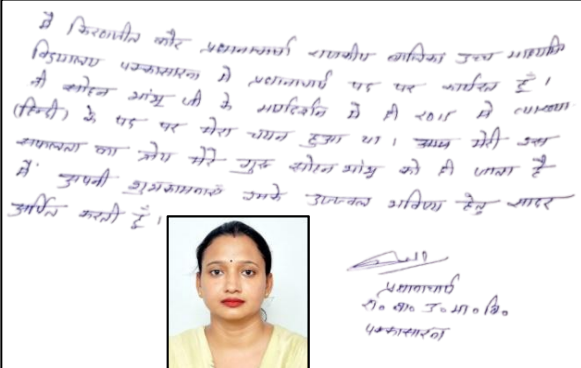 मैं किरणजीत कौर प्रधानाचार्या राजकीय बालिका उच्च माध्यमिक
विद्यालय पक्कासारना में प्रधानाचार्य पद पर कार्यरत हूँ।
श्री सोहन भांभू जी के मार्गदर्शन में ही २०१५ में व्याख्याता
(हिन्दी) के पद पर मेरा चयन हुआ था। मेरी इस
सफलता का श्रेय मेरे गुरु सोहन भांभू को ही जाता है
मैं अपनी शुभकामनाएं उनके उज्ज्वल भविष्य हेतु सादर
अर्पित करती हूँ।
प्रधानाचार्य
रा० बा० उ० मा० वि०
पक्कासारना